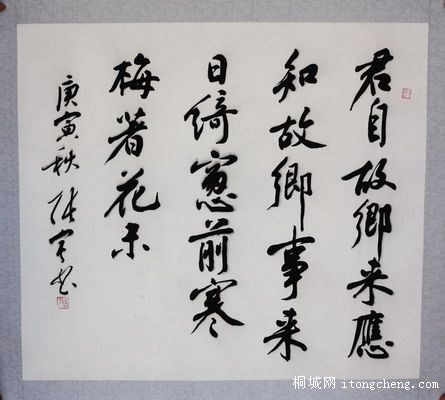 君自故鄉来應
知故鄉事来
日綺窻前寒
梅著花未
庚寅秋 張宏书
桐城网 itongcheng.com